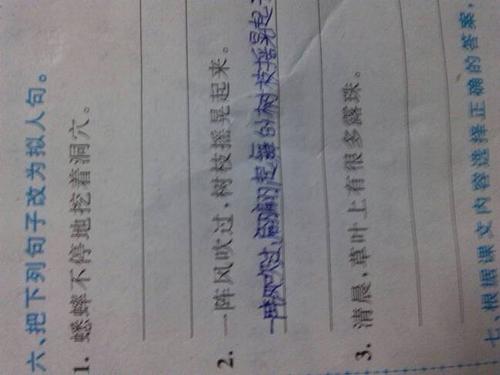 六、把下列句子改为拟人句。
1. 蟋蟀不停地挖着洞穴。
2. 一阵风吹过，树枝摇晃起来。
一阵风吹过,翩翩起舞的树枝摇晃起
3. 清晨，草叶上有很多露珠。
七、根据课文内容选择正确的答案，